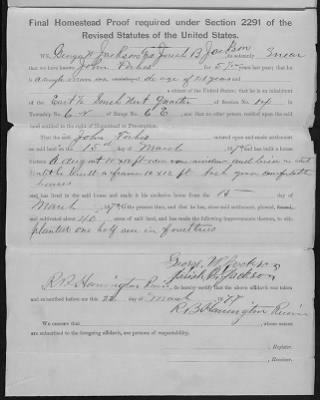 Final Homestead Proof required under Section 2291 of the
Revised Statutes of the United States.
We, George W Jackson & Josiah B Jackson do solemnly Swear
that we have known John Forbes for 5 years last past; that he is
a single man over the age of 21 years
a citizen of the United States; that he is an inhabitant
of the East ½ South West Quarter of Section No. 14
Township No. 6 N of Range No. 6 E, and that no other person resided upon the said
land entitled to the right of Homestead or Pre-emption.
That the said John Forbes entered upon and made settlement
on said land on the 15th day of March, 187 and has built a house
thereon
A dugout
until he built a frame 10 x 12 ft
houses
and has lived in the said house and made it his exclusive home from the 15 day of
March, 187 to the present time, and that he has, since said settlement, plowed, fenced,
and cultivated about 40 acres of said land, and has made the following improvements thereon, to wit:
planted one half acre in fruit trees
George W Jackson
Josiah B Jackson
I, R B Harrington Receiver do hereby certify that the above affidavit was taken
and subscribed before me this day of March 187
R B Harrington Receiver
We certify that , whose names
are subscribed to the foregoing affidavit, are persons of respectability.
, Register.
, Receiver.